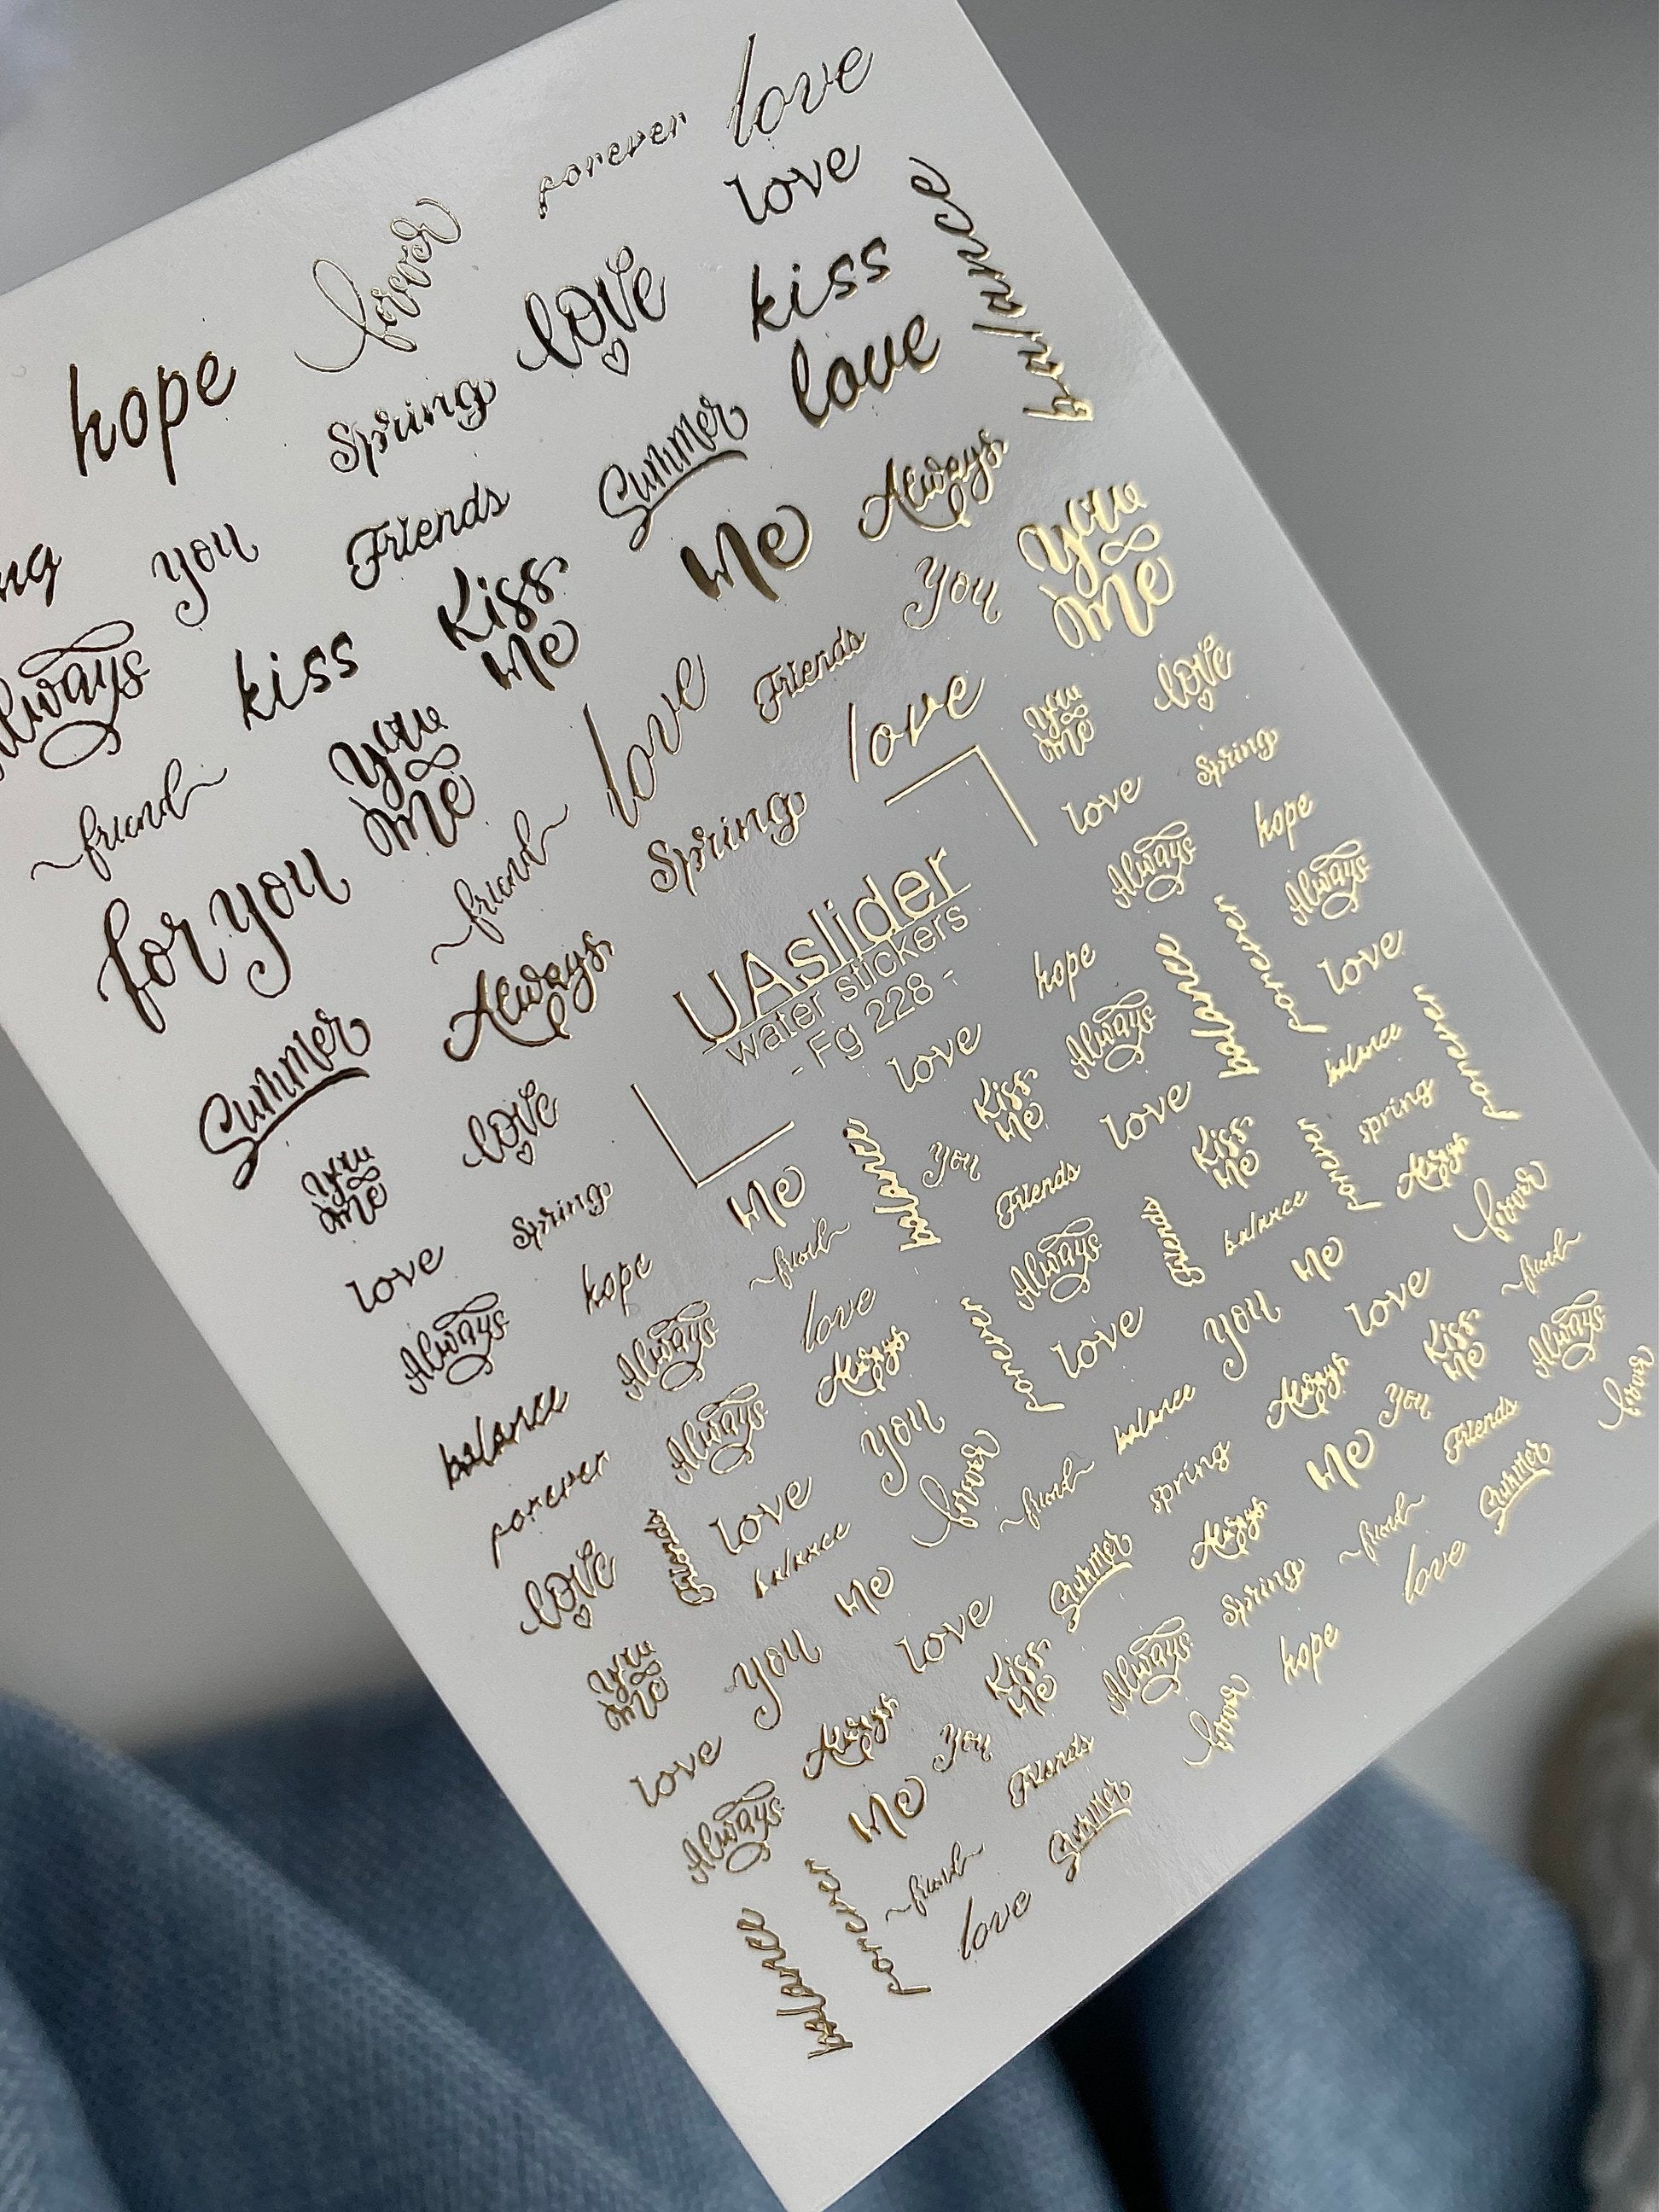 love
forever
forever
love
hope
love
kiss
balance
Spring
love
Summer
you
Friends
Always
Me
Kiss
Me
You
∞
Me
Always
kiss
Friends
You
love
love
~friend~
You
∞
Me
Spring
~friend~
for you
Always
Summer
UAslider
water stickers
- Fg 228 -
You
∞
Me
love
love
Spring
hope
Always
Always
love
forever
balance
hope
Always
love
Kiss
Me
balance
forever
spring
Always
forever
love
You
Friends
balance
Me
Kiss
Me
forever
Friends
balance
Me
~friend~
love
Always
Always
forever
love
you
love
Kiss
Me
Always
forever
You
∞
Me
love
Spring
love
hope
Always
Always
balance
Always
you
forever
~friend~
balance
spring
Always
Me
You
Friends
Summer
forever
Friends
love
balance
Me
Summer
Always
Spring
~friend~
love
love
You
∞
Me
you
love
Kiss
Me
Always
forever
hope
love
Always
You
Friends
Always
Me
Summer
balance
forever
~friend~
love